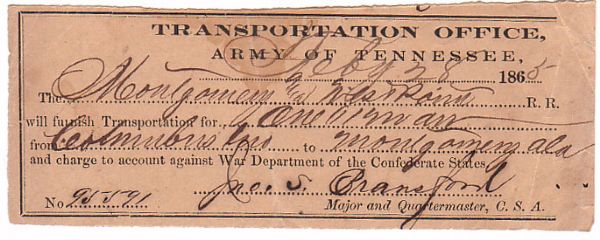 TRANSPORTATION OFFICE,
ARMY OF TENNESSEE,
Feby 28 1865
The Montgomery & West Point R. R.
will furnish Transportation for One (1) man
from Columbus Geo to Montgomery Ala
and charge to account against War Department of the Confederate States.
Jno. S. Bransford
No 95591 Major and Quartermaster, C. S. A.